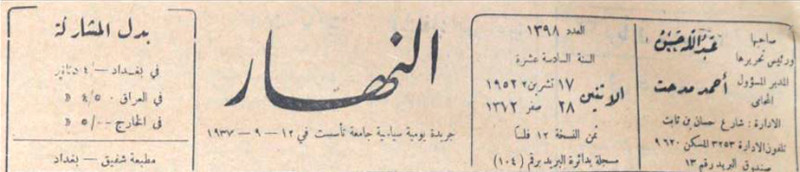 صاحبها
ورئيس تحريرها
عبد الله حسن
المدير المسؤول
المحامي
أحمد مدحت
الادارة : شارع حسان بن ثابت
تلفون الادارة ٣٢٥٣ المسكن ٩٦٢٠
صندوق البريد رقم ١٣
العدد ١٣٩٨
السنة السادسة عشرة
الاثنين
١٧ تشرين٢ ١٩٥٢
٢٨ صفر ١٣٧٢
ثمن النسخة ١٢ فلسا
مسجلة بدائرة البريد برقم (١٠٤)
النهار
جريدة يومية سياسية جامعة تأسست في ١٢ – ٩ – ١٩٣٧
بدل المشاركة
في بغداد –/٤ دنانير
في العراق ٤/٥٠٠ »
في الخارج ٥/٠٠٠ »
مطبعة شفيق – بغداد